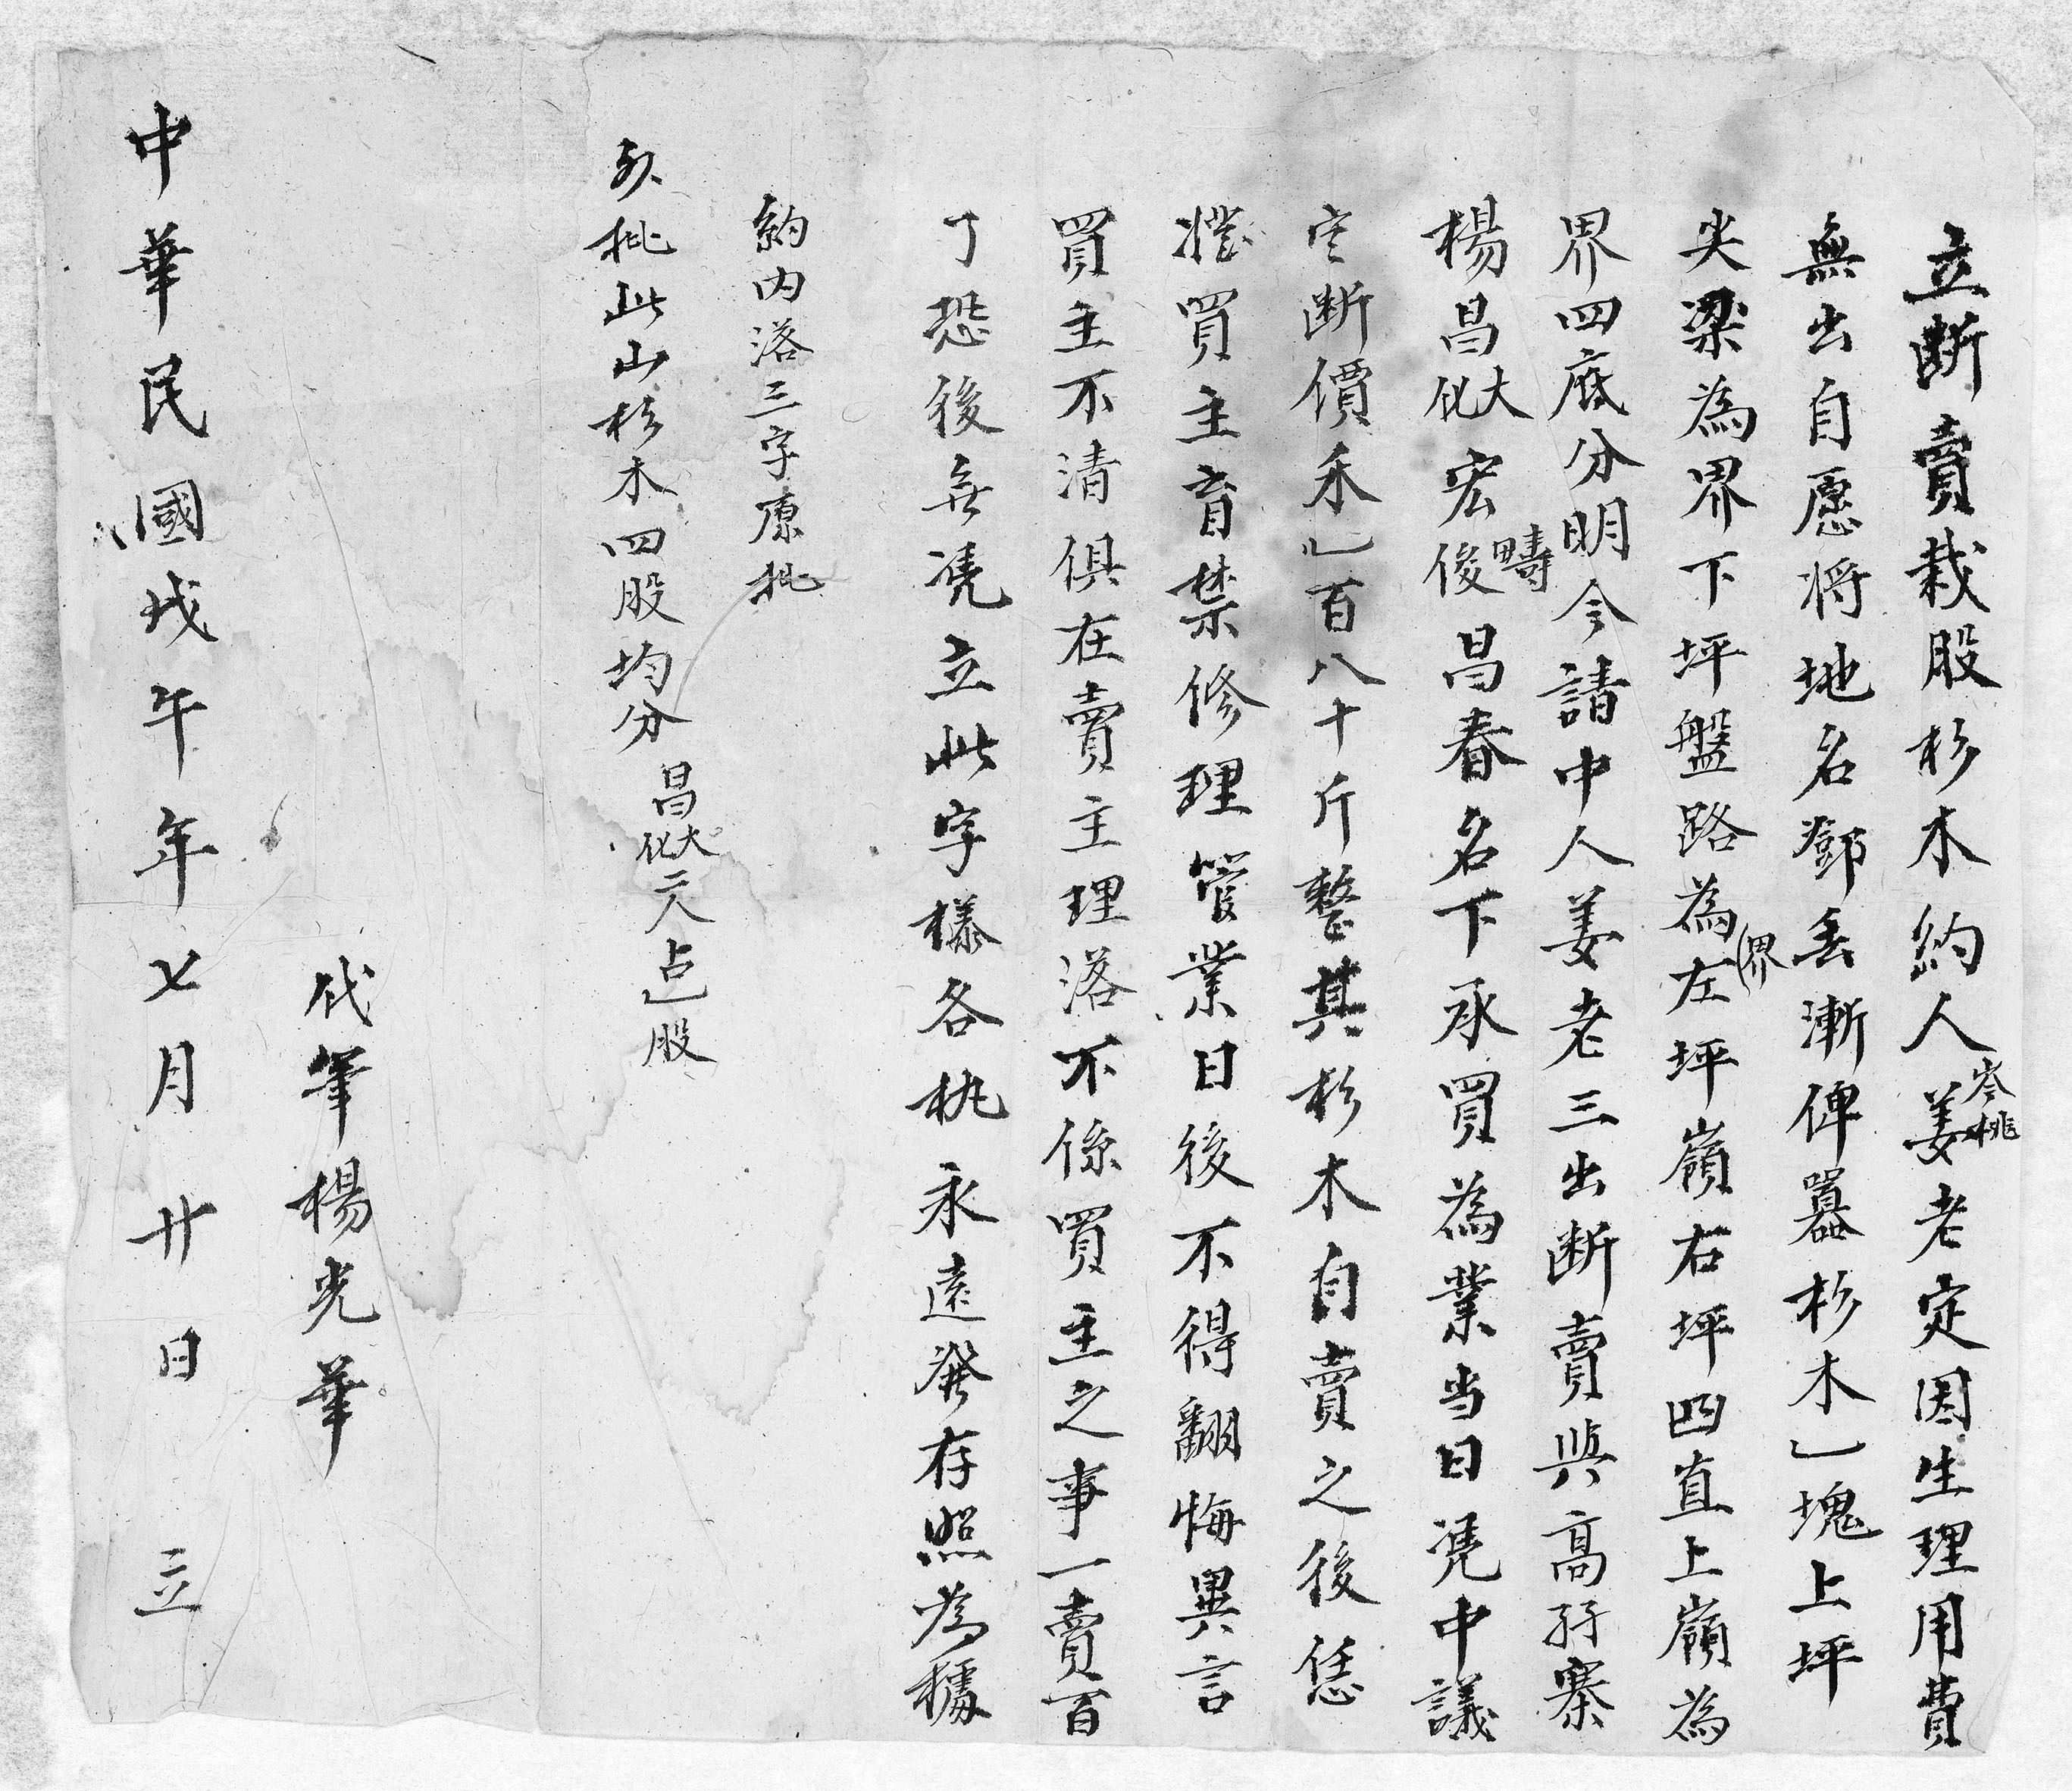 立断賣栽股杉木約人岑桃姜老定因生理用費
無出自愿将地名鄧丟漸俾嚣杉木乙塊上坪
尖梁為界下坪盤路為界左坪嶺右坪四直上嶺為
界四底分明今請中人姜老三出断賣與高孖寨
楊昌大化宏疇俊昌春名下承買為業当日凴中議
定断價禾乙百八十斤整其杉木自賣之後恁
凴買主畜禁修理管業日後不得翻悔異言
買主不清俱在賣主理落不係買主之事一賣百
了恐後無凴立此字樣各執永遠發存照為據
約內落三字原批
外批此山杉木四股均分昌大化二人占乙股
代筆楊光華
中華民國戊午年七月廿日立